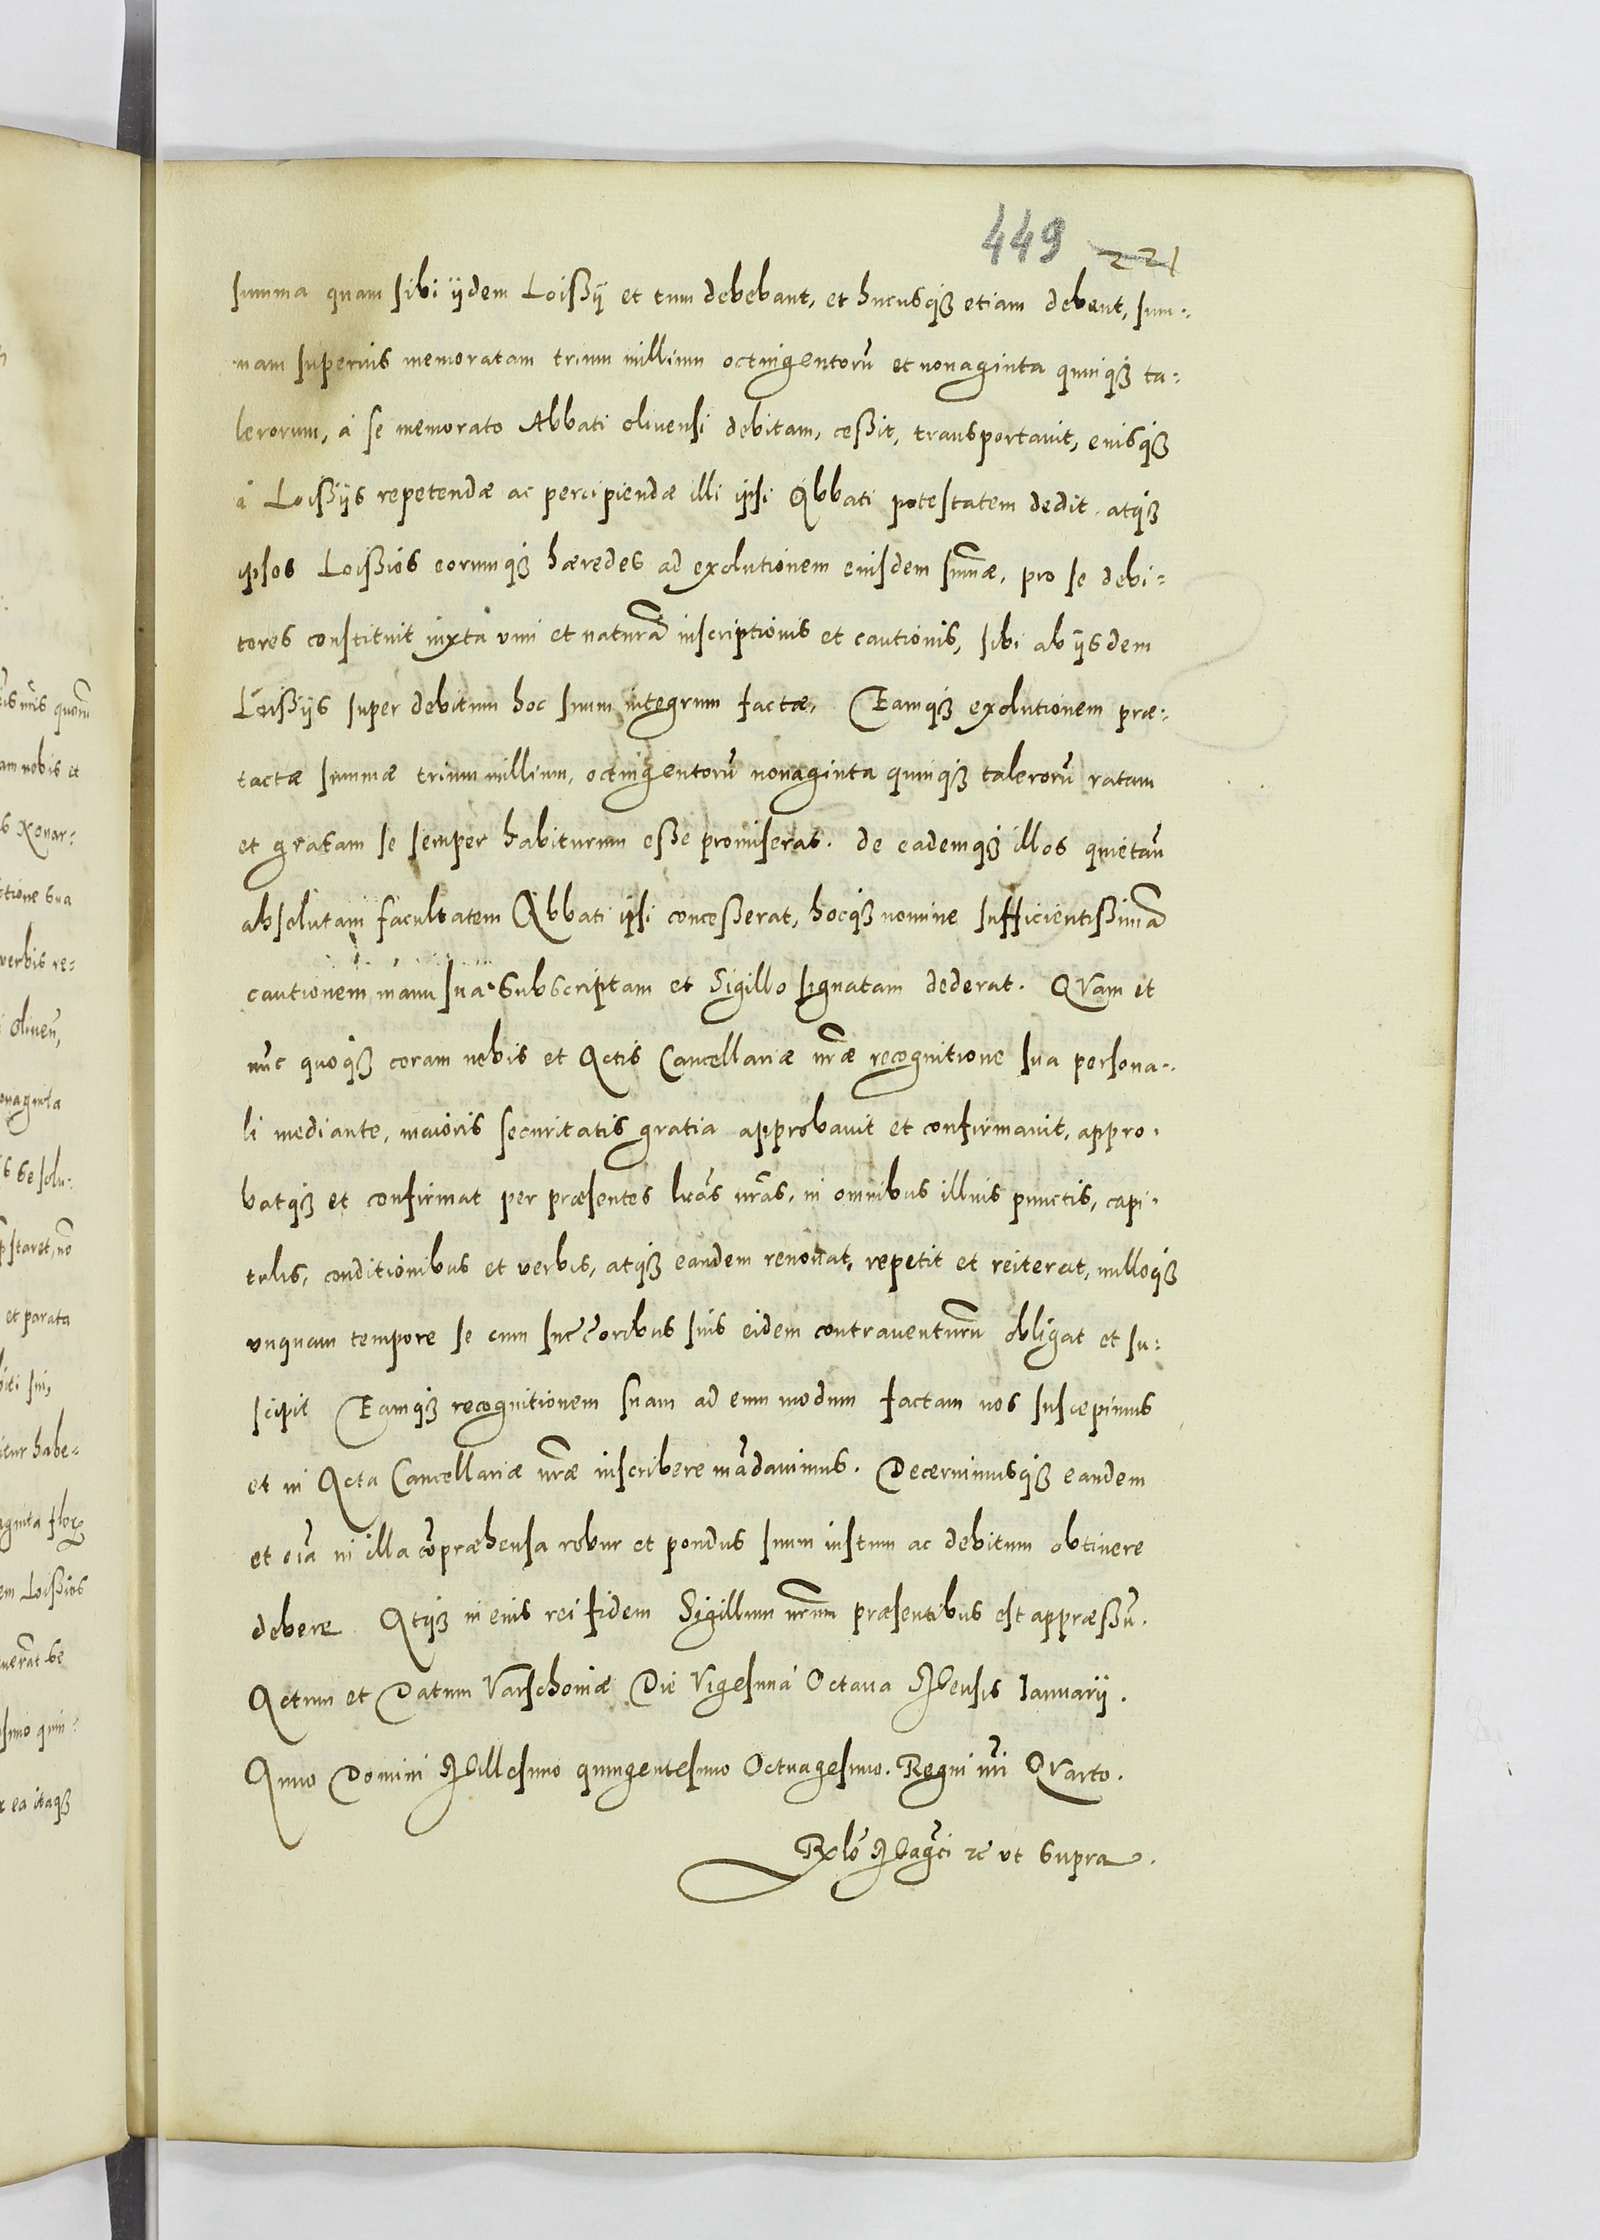 449 221
summa quam sibi ijdem Loißij et tum debebant, et hucusqꝫ etiam debent, sum-
mam superius memoratam trium millium octingentorũ et nonaginta quinqꝫ ta-
lerorum, à se memorato Abbati oliuensi debitam, ceßit, transportauit, eiusqꝫ
à Loißijs repetendæ ac percipiendæ illi ipsi Abbati potestatem dedit. atqꝫ
ipsos Loißios eorumqꝫ hæredes ad exolutionem eiusdem sum̃æ, pro se debi-
tores constituit iuxta vim et naturã inscriptionis et cautionis, sibi ab ijsdem
Loißijs super debitum hoc suum integrum factæ, Eamqꝫ exolutionem præ-
tactæ summæ trium millium, octingentorũ nonaginta quinqꝫ talerorũ ratam
et gratam se semper habiturum eße promiserat. de eademqꝫ illos quietañ
absolutam facultatem Abbati ipsi conceßerat, hocqꝫ nomine sufficientißimã
cautionem manu sua subscriptam et Sigillo signatam dederat. QVam et
nũc quoqꝫ coram nobis et Actis Cancellariæ nr̃æ recognitione sua persona-
li mediante, maioris securitatis gratia approbauit et confirmauit, appro-
batqꝫ et confirmat per præsentes lr̃as nr̃as, in omnibus illius punctis, capi-
tulis, conditionibus et verbis, atqꝫ eandem renouat, repetit et reiterat, nulloqꝫ
vnquam tempore se cum succ̃oribus suis eidem contrauenturũ obligat et su-
scipit Eamqꝫ recognitionem suam ad eum modum factam nos suscepimus
et in Acta Cancellariæ nr̃æ inscribere mãdauimus. Decernimusqꝫ eandem
et oĩa in illa cõpræhensa robur et pondus suum iustum ac debitum obtinere
debere Atqꝫ in eius rei fidem Sigillum nr̃um præsentibus est appræßũ.
Actum et Datum Varschouiæ Die Vigesima Octaua Mensis Ianuarij.
Anno Domini Millesimo quingentesimo Octuagesimo. Regni nr̃i QVarto.
Rxlõ Mag̃ci ꝛc vt supra.